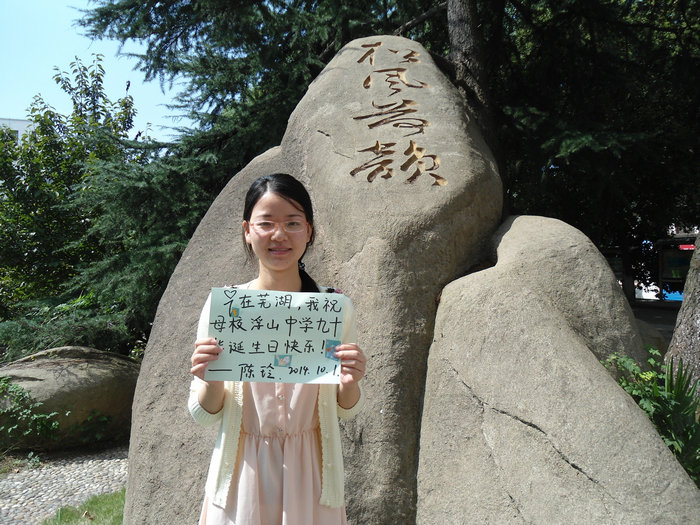 松风
荷韵
在芜湖，我祝
母校浮山中学九十
华诞生日快乐！
——陈玲 2014.10.1.